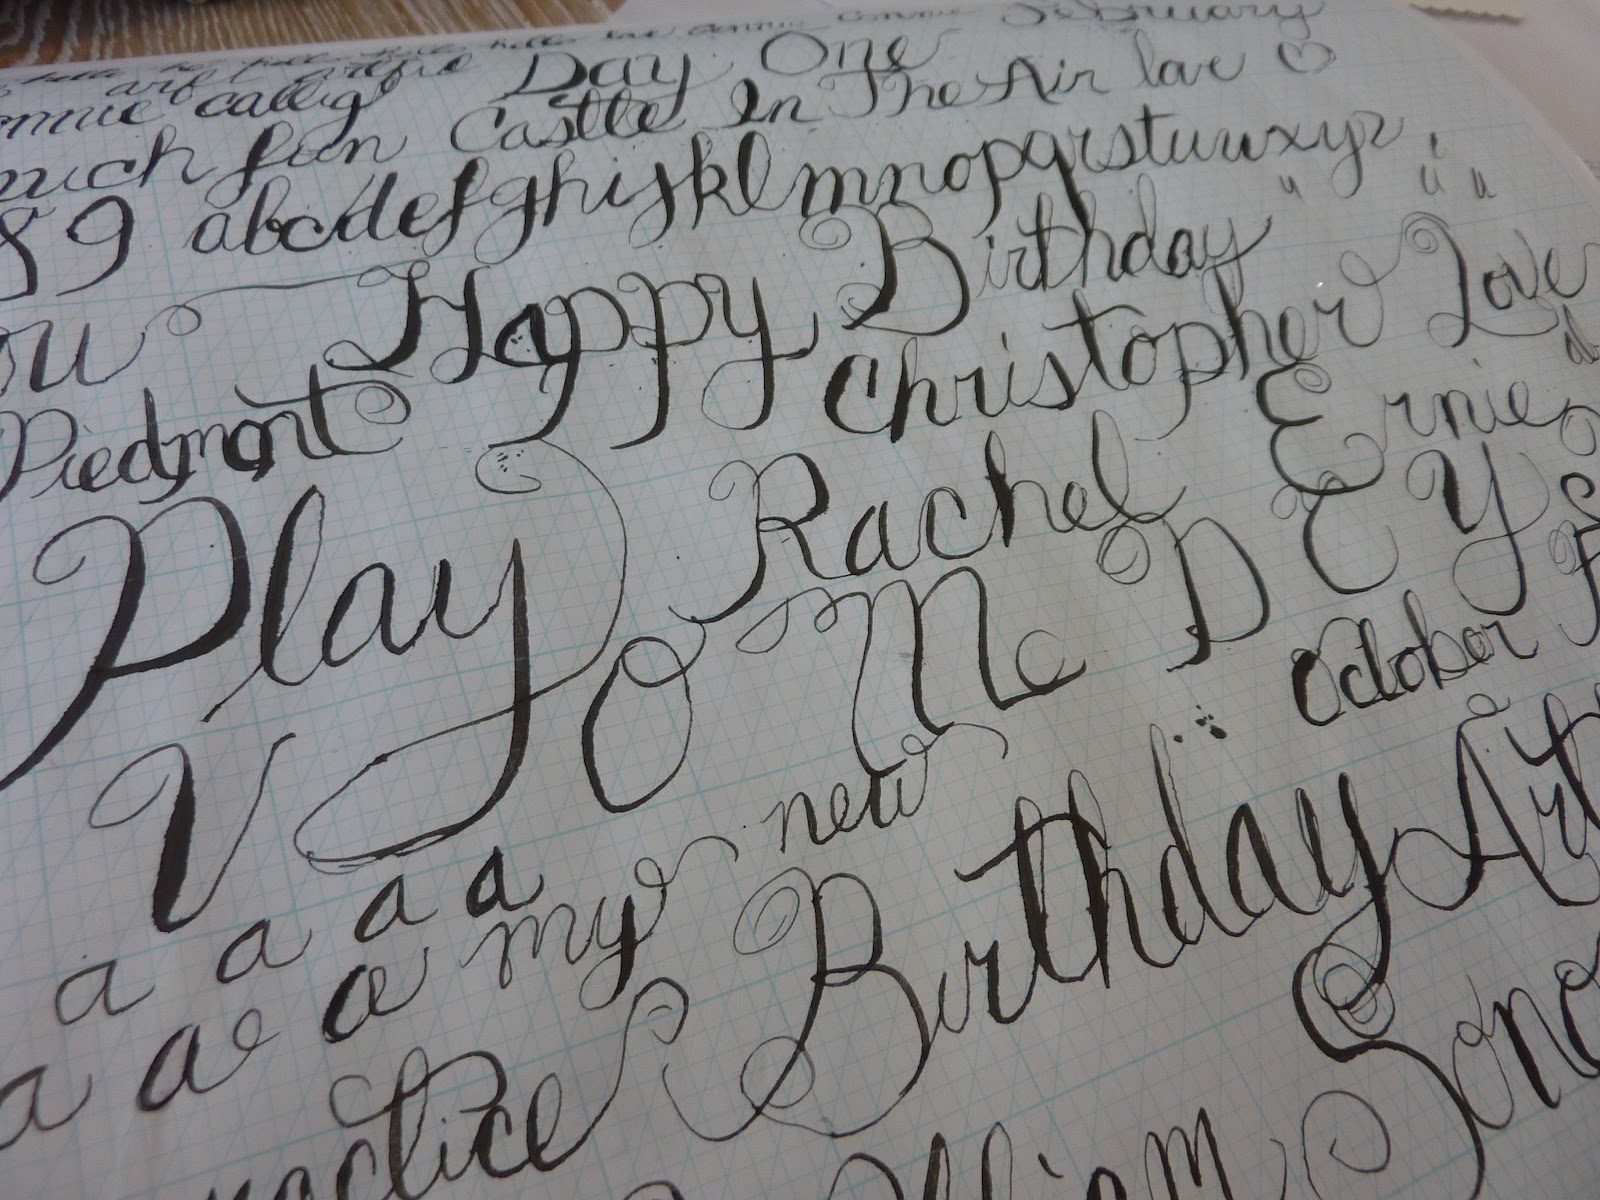 hello hello love Connie Connie February
art artful Day One
onnie callig Castle In The Air love
much fun
89 abcdefghijklmnopqrstuvwxyz
ou Happy Birthday
Piedmont Christopher Love
Play Rachel Ernie
V O M D E Y
October
a a a a my new Birthday Art
a a e a
practice William Sono